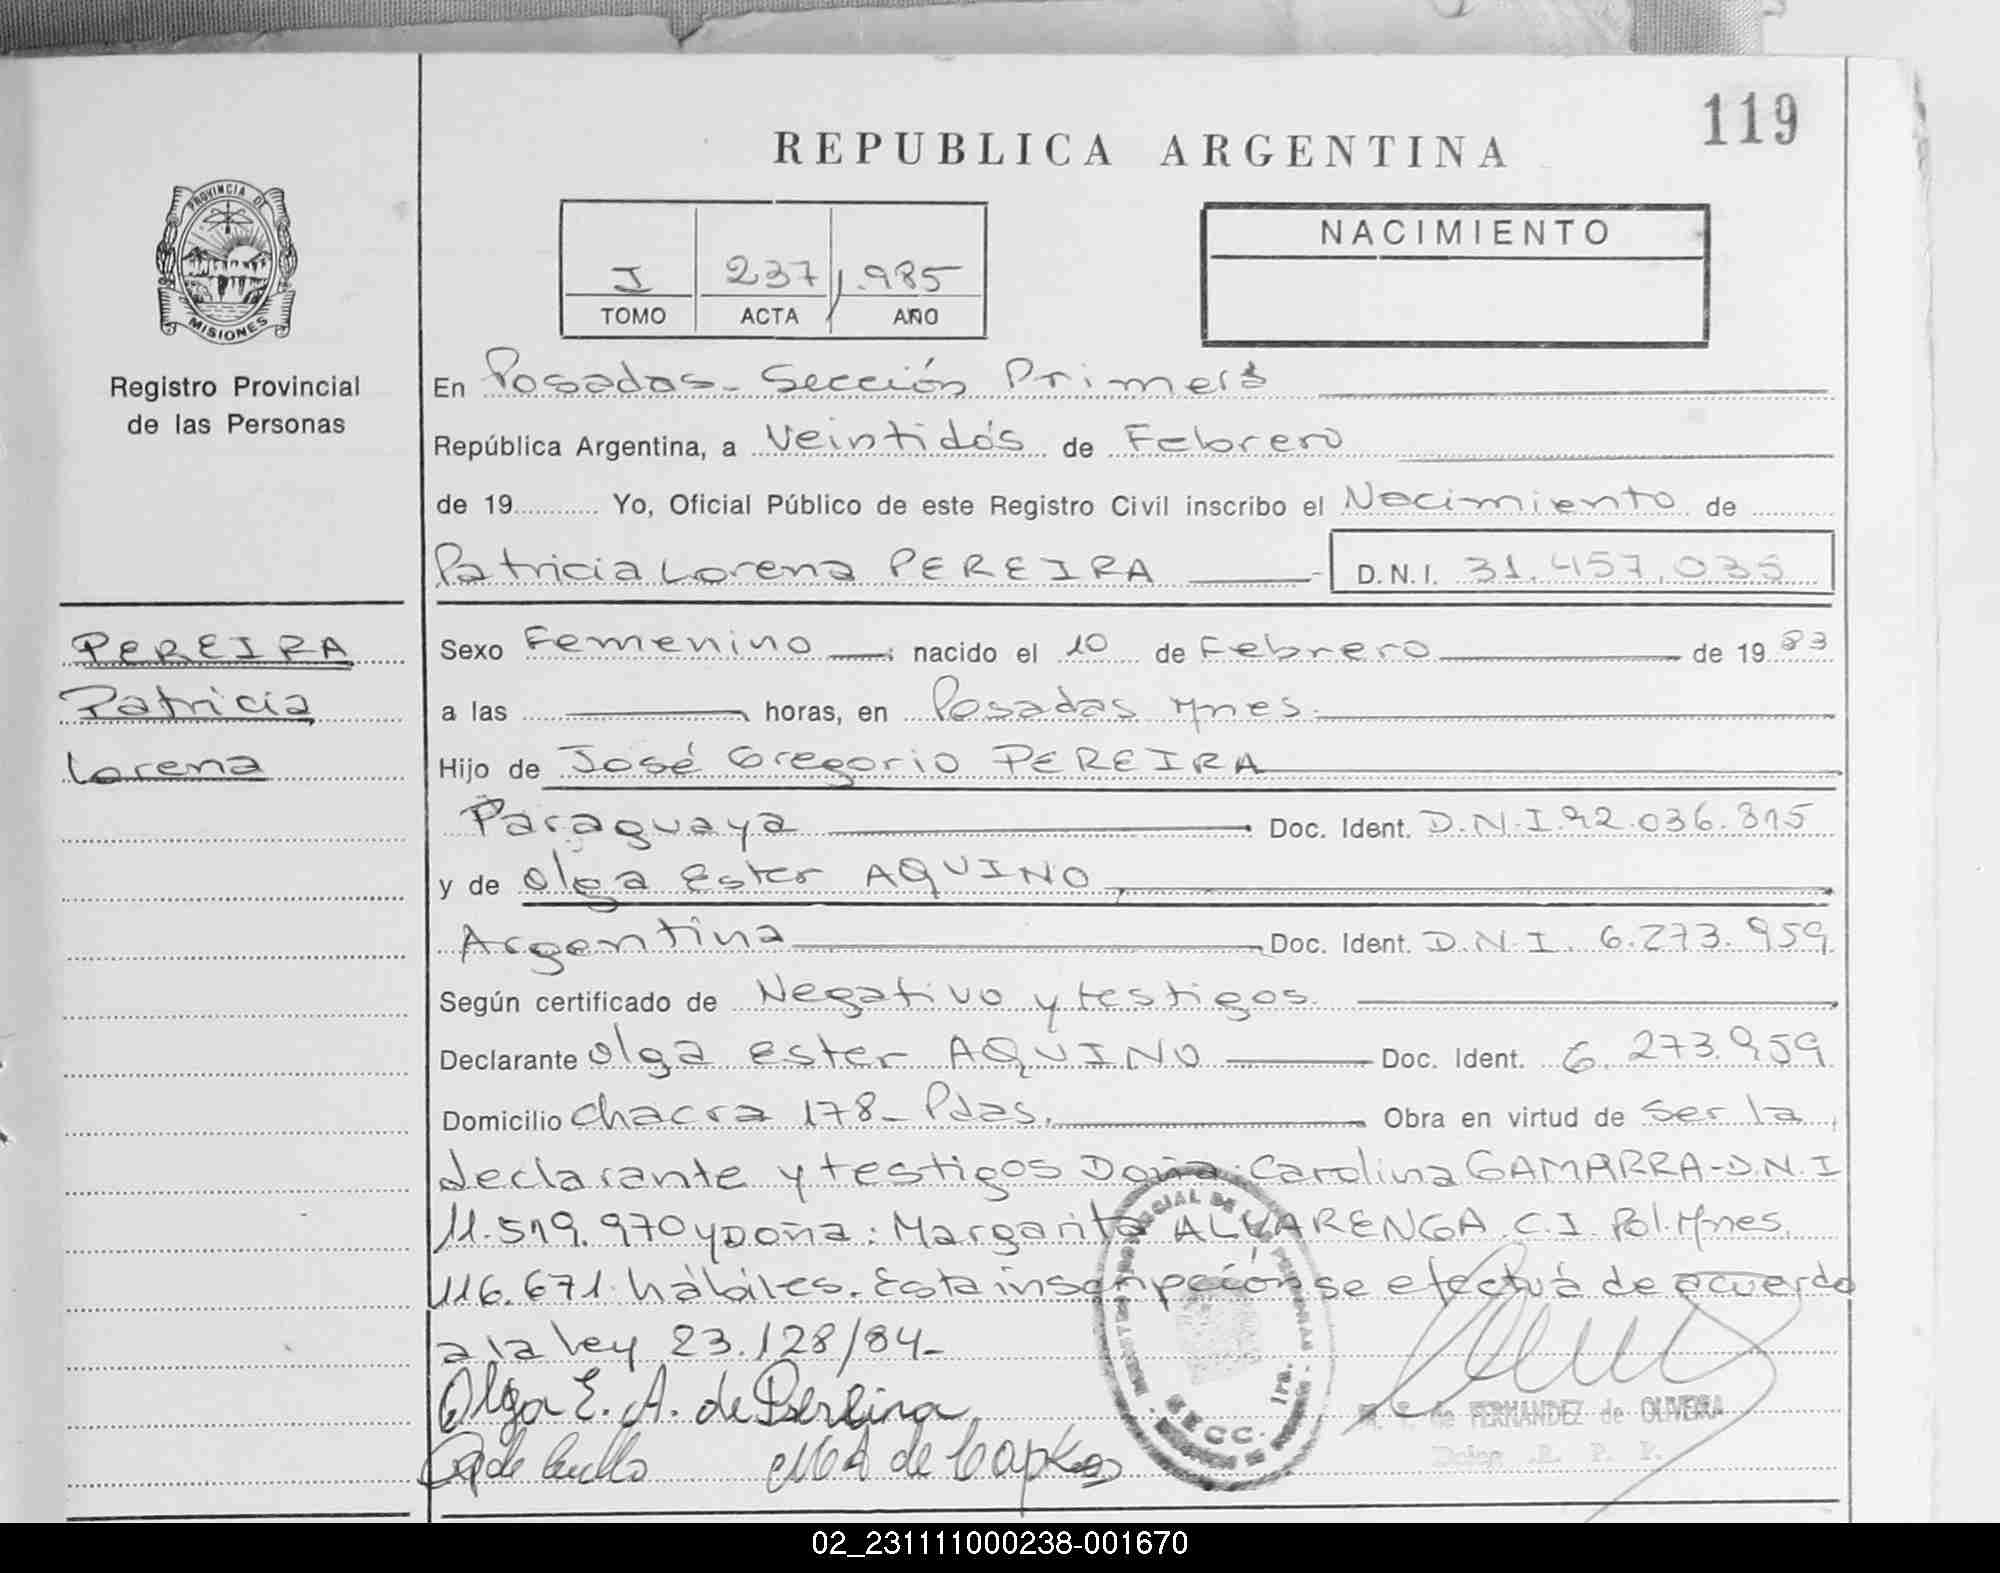 119
REPUBLICA ARGENTINA
PROVINCIA DE
MISIONES
Registro Provincial
de las Personas
I 237 1.985
TOMO ACTA AÑO
NACIMIENTO
En Posadas - Sección Primera
República Argentina, a Veintidós de Febrero
de 19 Yo, Oficial Público de este Registro Civil inscribo el Nacimiento de
Patricia Lorena PEREIRA D.N.I. 31.457.035
PEREIRA
Patricia
Lorena
Sexo Femenino ; nacido el 10 de Febrero de 19 83
a las horas, en Posadas Mnes.
Hijo de José Gregorio PEREIRA
Paraguaya Doc. Ident. D.N.I. 92.036.815
y de Olga Ester AQUINO
Argentina Doc. Ident. D.N.I. 6.273.959
Según certificado de Negativo y testigos.
Declarante Olga Ester AQUINO Doc. Ident. 6.273.959
Domicilio Chacra 178- Pdas. Obra en virtud de Ser la
declarante y testigos Doña: Carolina GAMARRA-D.N.I
11.519.970 y Doña: Margarita ALVARENGA. C.I. Pol. Mnes.
116.671. hábiles. Esta inscripción se efectuá de acuerdo
a la ley 23.128/84-
Olga E. A. de Pereira
de FERNANDEZ de OLIVEIRA
R. P. P.
SECC. 1ra.
02_231111000238-001670